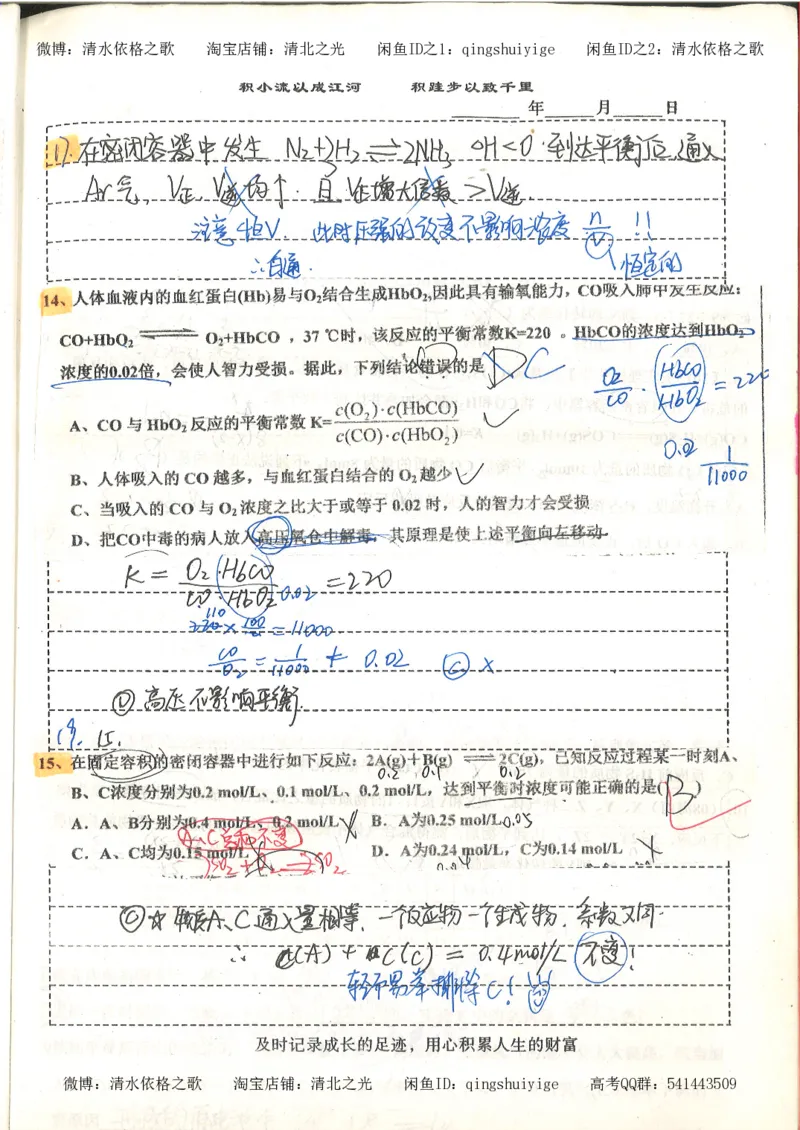 微博：清水依格之歌 淘宝店铺：清北之光 闲鱼ID之1：qingshuiyige 闲鱼ID之2：清水依格之歌
积小流以成江河 积跬步以致千里
年 月 日
17. 在密闭容器中发生 N₂+3H₂⇌2NH₃ △H<0 到达平衡后, 通入
Ar气, V正, V逆均↑. 且 V正增大倍数 >V逆.
注意 恒V. 此时压强的改变不影响浓度 n/V !!
恒定的
∴白通.
14、人体血液内的血红蛋白(Hb)易与O₂结合生成HbO₂,因此具有输氧能力，CO吸入肺中发生反应：
CO+HbO₂ ⇌ O₂+HbCO ，37 ℃时，该反应的平衡常数K=220 。HbCO的浓度达到HbO₂
浓度的0.02倍，会使人智力受损。据此，下列结论错误的是 D C
O₂/CO · HbCO/HbO₂ = 220
0.02 1/11000
A、CO 与 HbO₂反应的平衡常数 K= c(O₂)·c(HbCO) / c(CO)·c(HbO₂)
B、人体吸入的 CO 越多，与血红蛋白结合的 O₂越少
C、当吸入的 CO 与 O₂浓度之比大于或等于 0.02 时，人的智力才会受损
D、把CO中毒的病人放入高压氧仓中解毒，其原理是使上述平衡向左移动.
K = O₂·HbCO / CO·HbO₂ 0.02 =220
110
220 × 100/2 = 11000
CO/O₂ = 1/11000 ≠ 0.02 Ⓒ ×
Ⓓ 高压不影响平衡.
15、在固定容积的密闭容器中进行如下反应：2A(g)＋B(g) ⇌ 2C(g)，已知反应过程某一时刻A、
0.2 0.1 0.2
B、C浓度分别为0.2 mol/L、0.1 mol/L、0.2 mol/L，达到平衡时浓度可能正确的是( B )
A．A、B分别为0.4 mol/L、0.2 mol/L B．A为0.25 mol/L 0.05
A、C总和不变
C．A、C均为0.15 mol/L D．A为0.24 mol/L，C为0.14 mol/L
0.04
Ⓒ ☆ 发A、C通入量相等, 一个反应物一个生成物, 系数又同.
∴ c(A) + c(C) = 0.4mol/L 不变!
轻而易举排除C! !!
及时记录成长的足迹，用心积累人生的财富
微博：清水依格之歌 淘宝店铺：清北之光 闲鱼ID：qingshuiyige 高考QQ群：541443509